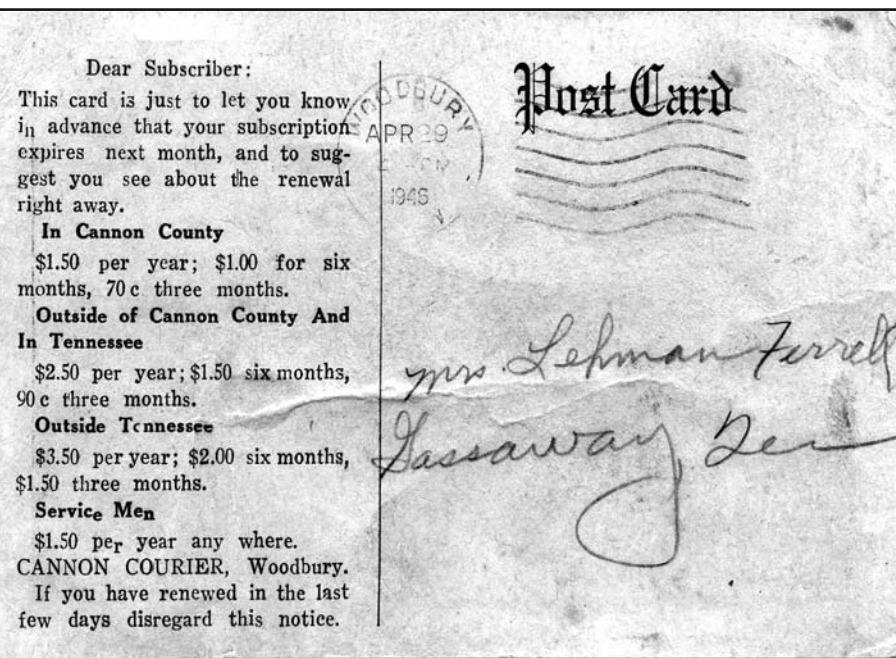 Dear Subscriber:
This card is just to let you know
in advance that your subscription
expires next month, and to sug-
gest you see about the renewal
right away.
In Cannon County
$1.50 per year; $1.00 for six
months, 70 c three months.
Outside of Cannon County And
In Tennessee
$2.50 per year; $1.50 six months,
90 c three months.
Outside Tennessee
$3.50 per year; $2.00 six months,
$1.50 three months.
Service Men
$1.50 per year any where.
CANNON COURIER, Woodbury.
If you have renewed in the last
few days disregard this notice.
WOODBURY
APR 29
PM
Post Card
Mrs. Lehman Ferrell
Gassaway, Ten